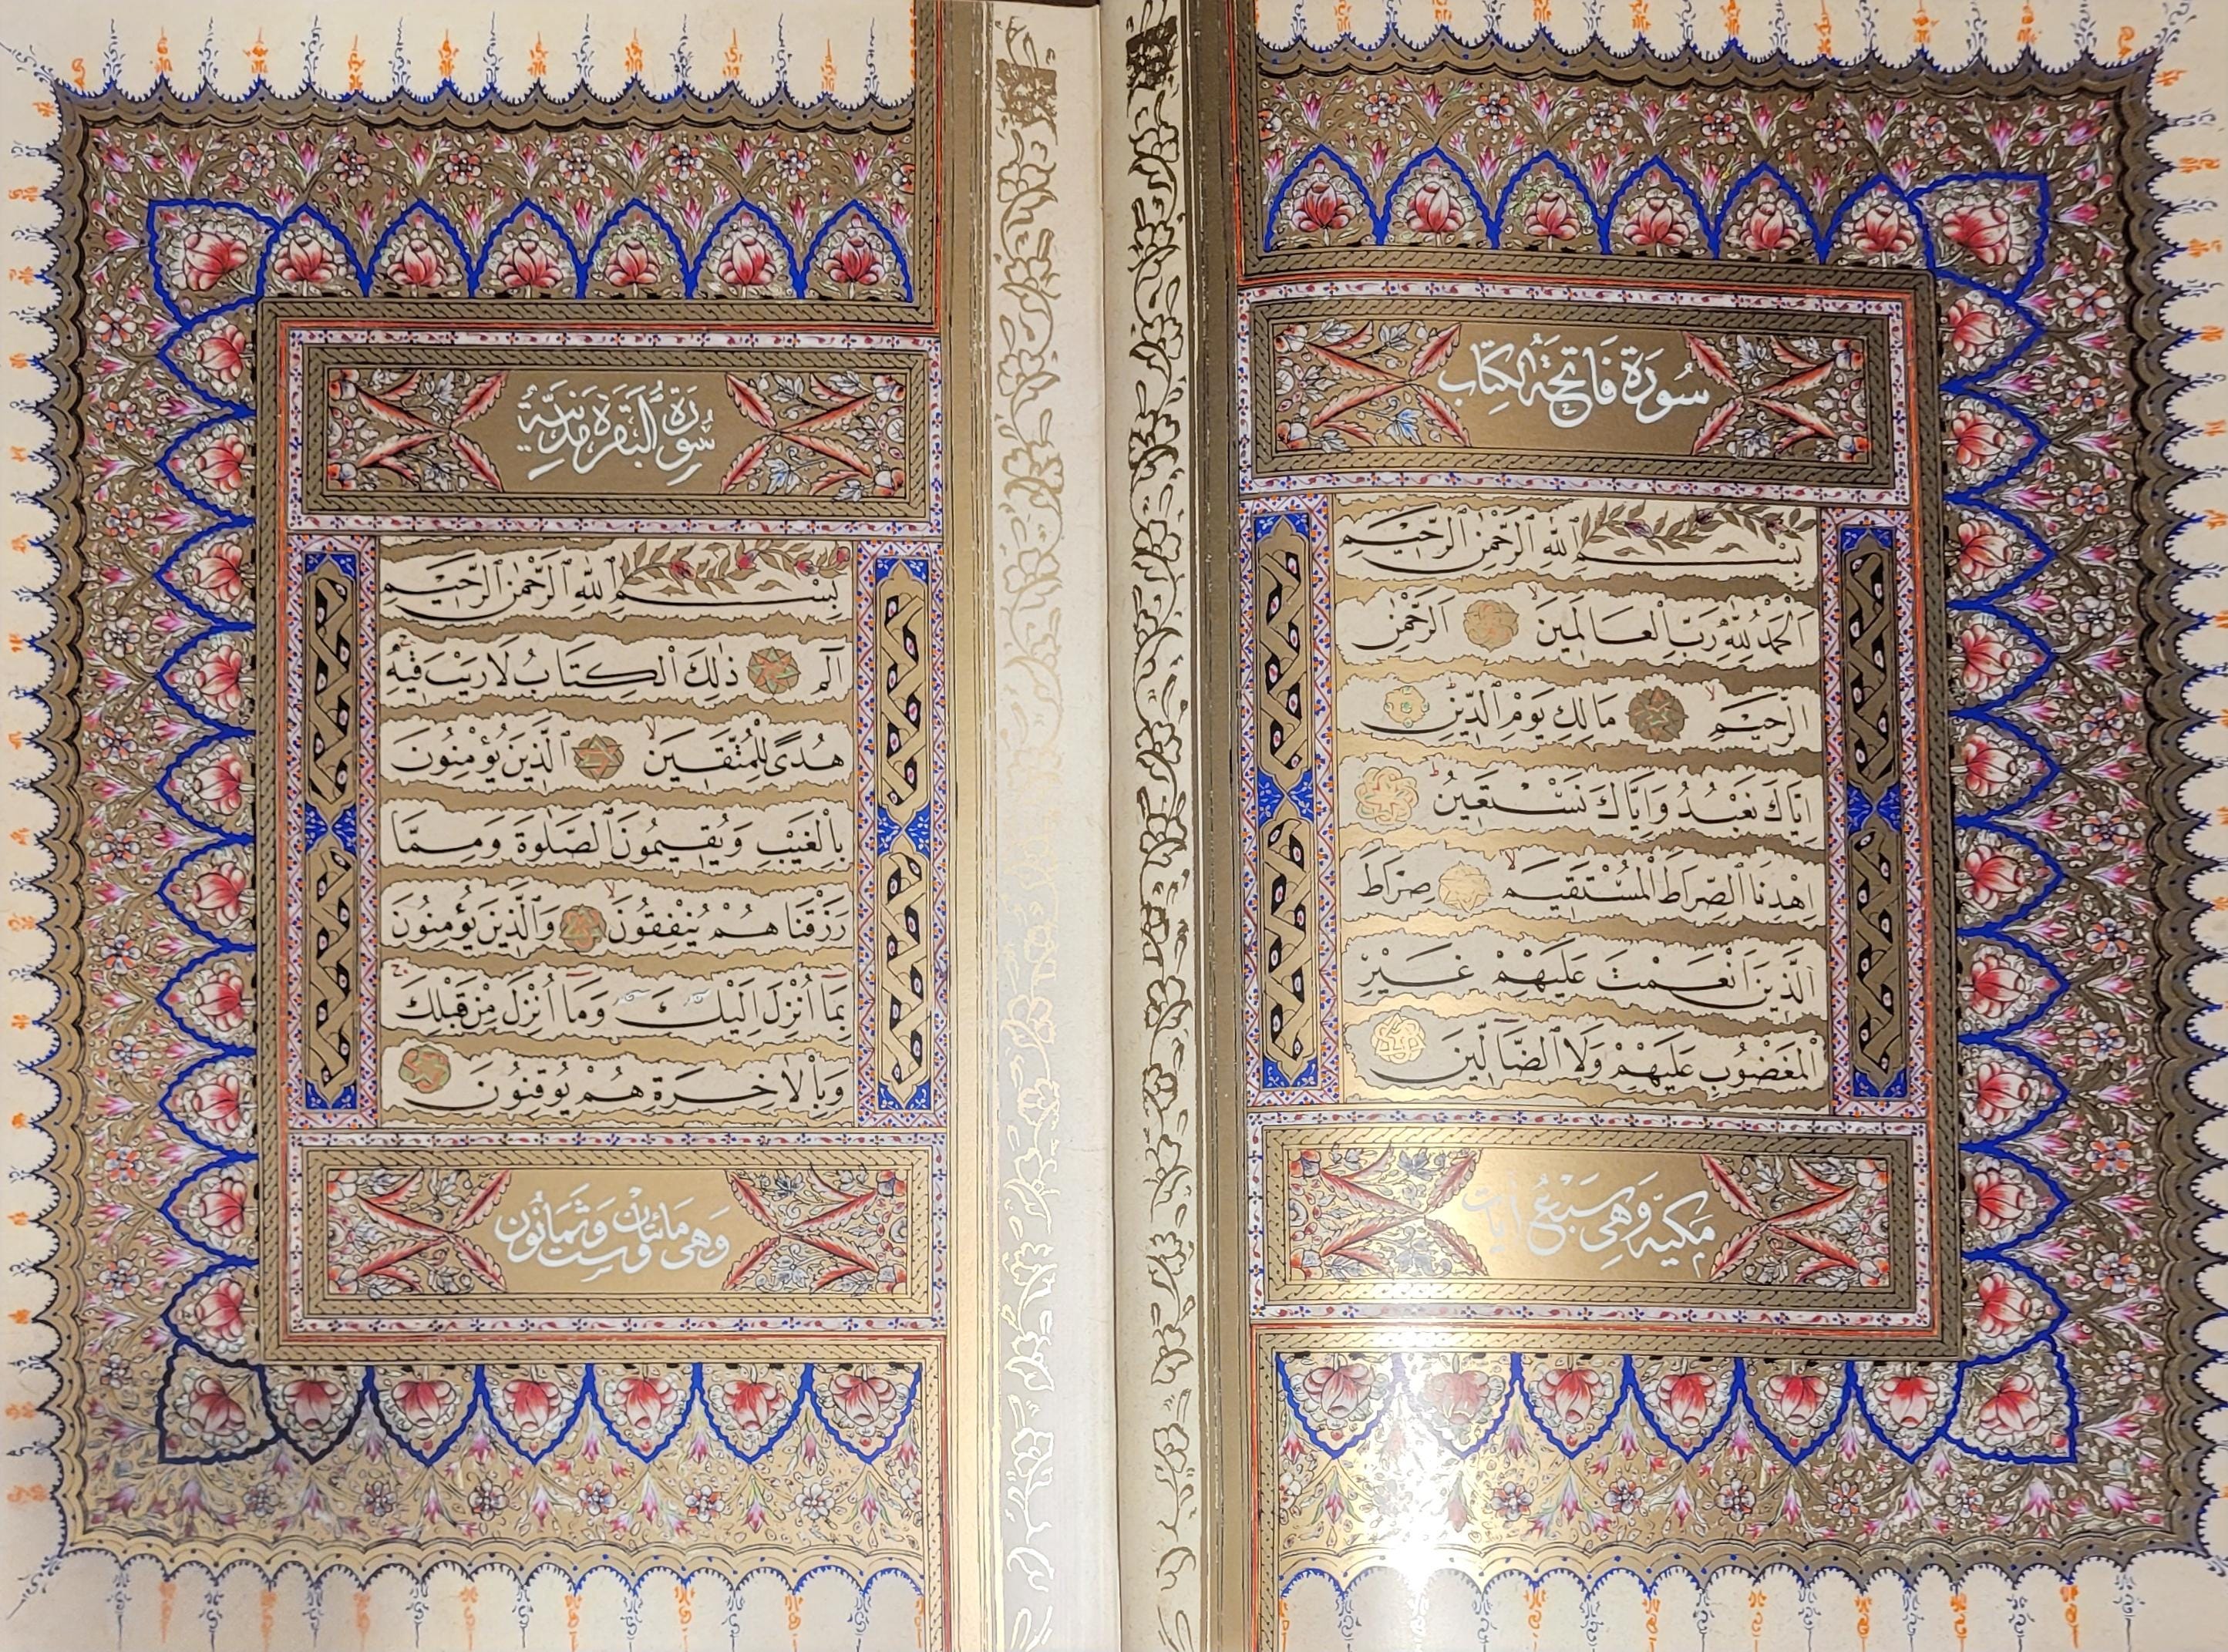 سُورَةُ فَاتِحَةِ الْكِتَابِ
بِسْمِ اللّٰهِ الرَّحْمٰنِ الرَّحِيمِ
اَلْحَمْدُ لِلّٰهِ رَبِّ الْعَالَمِينَ ۙ اَلرَّحْمٰنِ
الرَّحِيمِ ۙ مَالِكِ يَوْمِ الدِّينِ
اِيَّاكَ نَعْبُدُ وَاِيَّاكَ نَسْتَعِينُ ۜ
اِهْدِنَا الصِّرَاطَ الْمُسْتَقِيمَ ۙ صِرَاطَ
الَّذِينَ اَنْعَمْتَ عَلَيْهِمْ غَيْرِ
الْمَغْضُوبِ عَلَيْهِمْ وَلَا الضَّٓالِّينَ
مَكِّيَّة وَهِيَ سَبْعُ اٰيَات
سُورَةُ الْبَقَرَةِ مَدَنِيَّةٌ
بِسْمِ اللّٰهِ الرَّحْمٰنِ الرَّحِيمِ
الٓمٓ ذٰلِكَ الْكِتَابُ لَا رَيْبَ ۛ فِيهِ ۛ
هُدًى لِلْمُتَّقِينَ ۙ اَلَّذِينَ يُؤْمِنُونَ
بِالْغَيْبِ وَيُقِيمُونَ الصَّلٰوةَ وَمِمَّا
رَزَقْنَاهُمْ يُنْفِقُونَ ۙ وَالَّذِينَ يُؤْمِنُونَ
بِمَٓا اُنْزِلَ اِلَيْكَ وَمَٓا اُنْزِلَ مِنْ قَبْلِكَ ۚ
وَبِالْاٰخِرَةِ هُمْ يُوقِنُونَ
وَهِيَ مَائَتَانِ وَسِتٌّ وَثَمَانُونَ